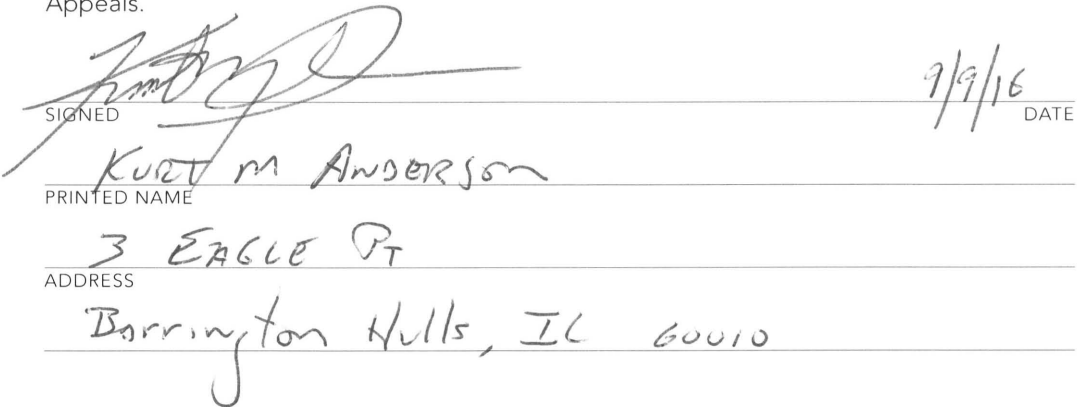 Appeals.
9/9/16
SIGNED DATE
KURT M ANDERSON
PRINTED NAME
3 EAGLE PT
ADDRESS
Barrington Hills, IL 60010